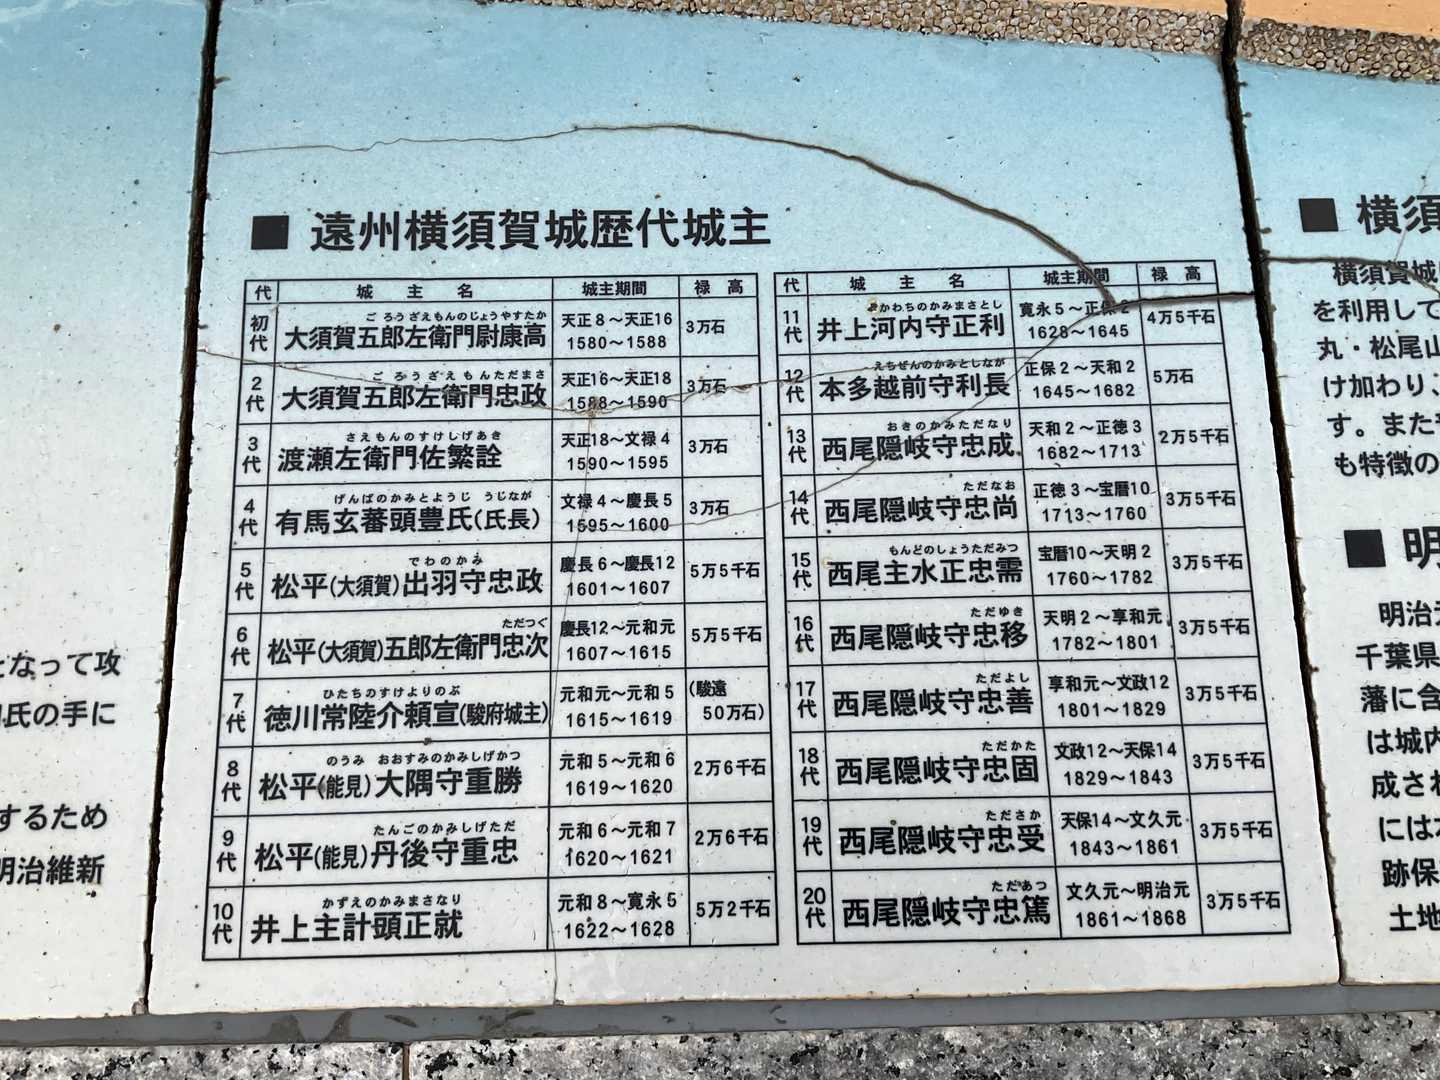 となって攻
氏の手に
するため
明治維新
■ 遠州横須賀城歴代城主
代 城主名 城主期間 禄高
初代 ごろうざえもんのじょうやすたか 大須賀五郎左衛門尉康高 天正8～天正16 1580～1588 3万石
2代 ごろうざえもんただまさ 大須賀五郎左衛門忠政 天正16～天正18 1588～1590 3万石
3代 さえもんのすけしげあき 渡瀬左衛門佐繁詮 天正18～文禄4 1590～1595 3万石
4代 げんばのかみとようじ うじなが 有馬玄蕃頭豊氏(氏長) 文禄4～慶長5 1595～1600 3万石
5代 でわのかみ 松平(大須賀)出羽守忠政 慶長6～慶長12 1601～1607 5万5千石
6代 ただつぐ 松平(大須賀)五郎左衛門忠次 慶長12～元和元 1607～1615 5万5千石
7代 ひたちのすけよりのぶ 徳川常陸介頼宣(駿府城主) 元和元～元和5 1615～1619 (駿遠 50万石)
8代 のうみ おおすみのかみしげかつ 松平(能見)大隅守重勝 元和5～元和6 1619～1620 2万6千石
9代 たんごのかみしげただ 松平(能見)丹後守重忠 元和6～元和7 1620～1621 2万6千石
10代 かずえのかみまさなり 井上主計頭正就 元和8～寛永5 1622～1628 5万2千石
代 城主名 城主期間 禄高
11代 かわちのかみまさとし 井上河内守正利 寛永5～正保2 1628～1645 4万5千石
12代 えちぜんのかみとしなが 本多越前守利長 正保2～天和2 1645～1682 5万石
13代 おきのかみただなり 西尾隠岐守忠成 天和2～正徳3 1682～1713 2万5千石
14代 ただなお 西尾隠岐守忠尚 正徳3～宝暦10 1713～1760 3万5千石
15代 もんどのしょうただみつ 西尾主水正忠需 宝暦10～天明2 1760～1782 3万5千石
16代 ただゆき 西尾隠岐守忠移 天明2～享和元 1782～1801 3万5千石
17代 ただよし 西尾隠岐守忠善 享和元～文政12 1801～1829 3万5千石
18代 ただかた 西尾隠岐守忠固 文政12～天保14 1829～1843 3万5千石
19代 たださか 西尾隠岐守忠受 天保14～文久元 1843～1861 3万5千石
20代 ただあつ 西尾隠岐守忠篤 文久元～明治元 1861～1868 3万5千石
■ 横須
横須賀城
を利用して
丸・松尾山
け加わり、
す。また
も特徴の
■ 明
明治元
千葉県
藩に含
は城内
成され
には
跡保
土地